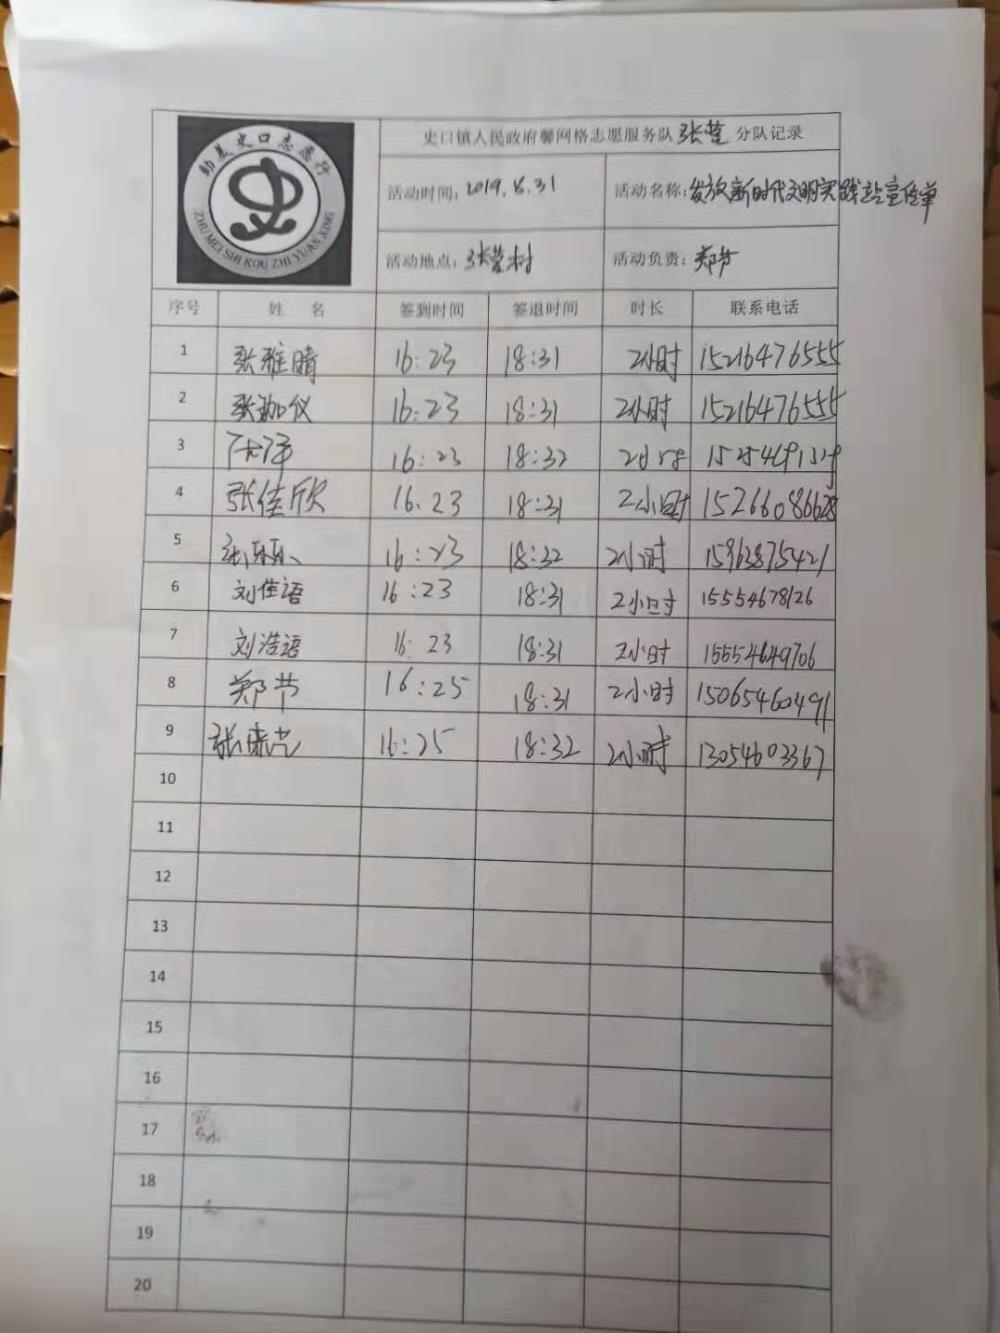 助美史口志愿行
ZHU MEI SHI KOU ZHI YUAN XING
史口镇人民政府馨网格志愿服务队 张营 分队记录
活动时间：2019.8.31 活动名称：发放新时代文明实践站宣传单
活动地点：张营村 活动负责：郑节
序号 姓 名 签到时间 签退时间 时长 联系电话
1 张雅晴 16:23 18:31 2小时 15216476555
2 张珈仪 16:23 18:31 2小时 15216476555
3 16:23 18:32 2小时
4 张佳欣 16.23 18:31 2小时 15266086628
5 16:23 18:32 2小时 15963875421
6 刘佳语 16:23 18:31 2小时 15554678126
7 刘浩语 16:23 18:31 2小时 15554649706
8 郑节 16:25 18:31 2小时 15065460491
9 16:25 18:32 2小时 13054603367
10
11
12
13
14
15
16
17
18
19
20